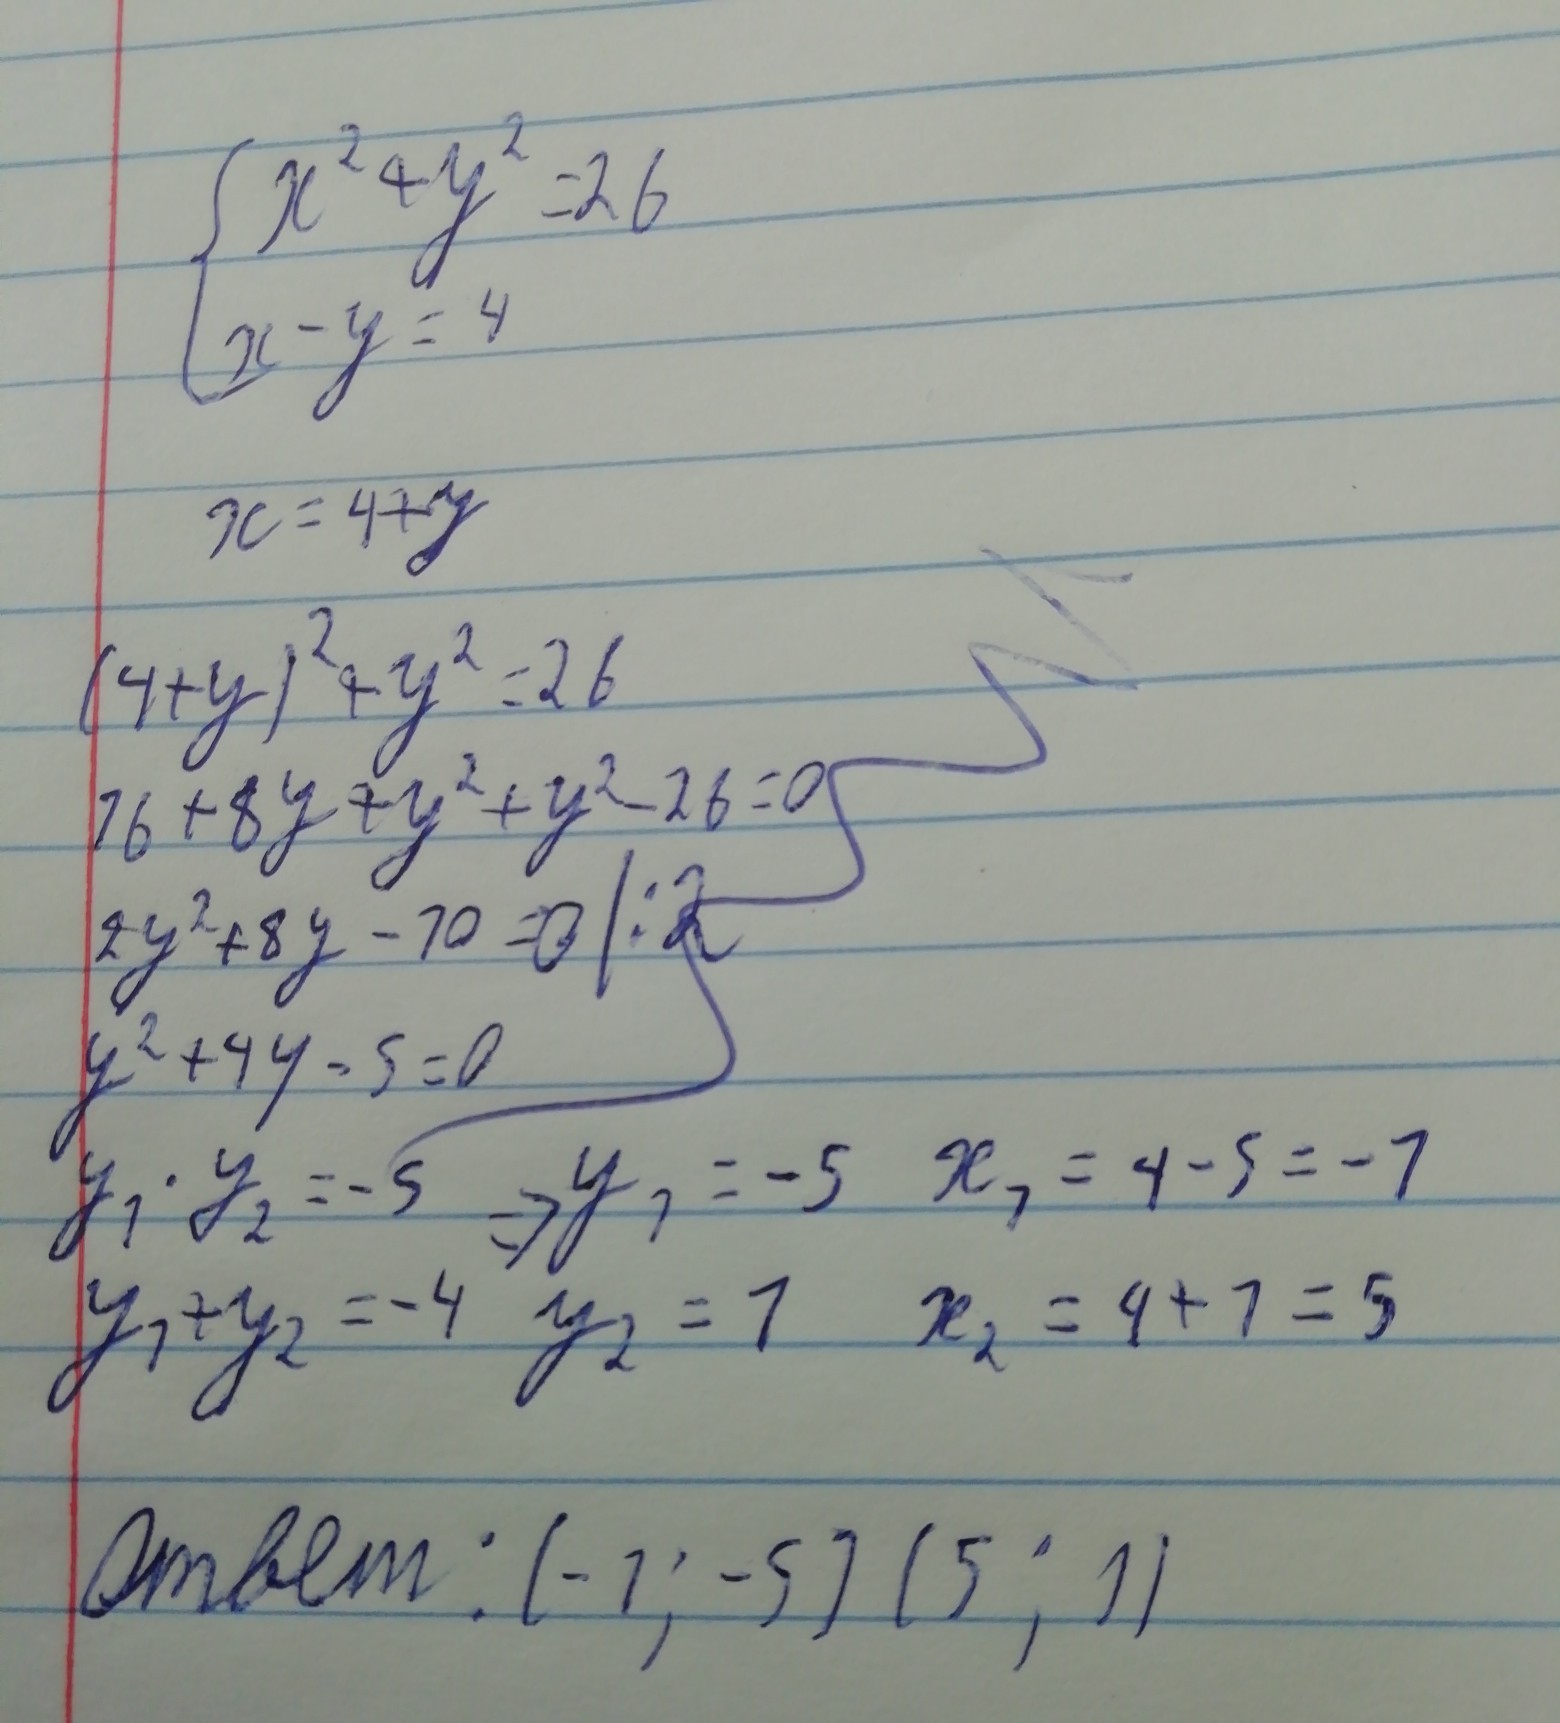 { x² + y² = 26
x - y = 4
x = 4 + y
(4 + y)² + y² = 26
16 + 8y + y² + y² - 26 = 0
2y² + 8y - 10 = 0 | : 2
y² + 4y - 5 = 0
y₁ · y₂ = -5 ⇒ y₁ = -5 x₁ = 4 - 5 = -1
y₁ + y₂ = -4 y₂ = 1 x₂ = 4 + 1 = 5
Ответ: (-1; -5) (5; 1)